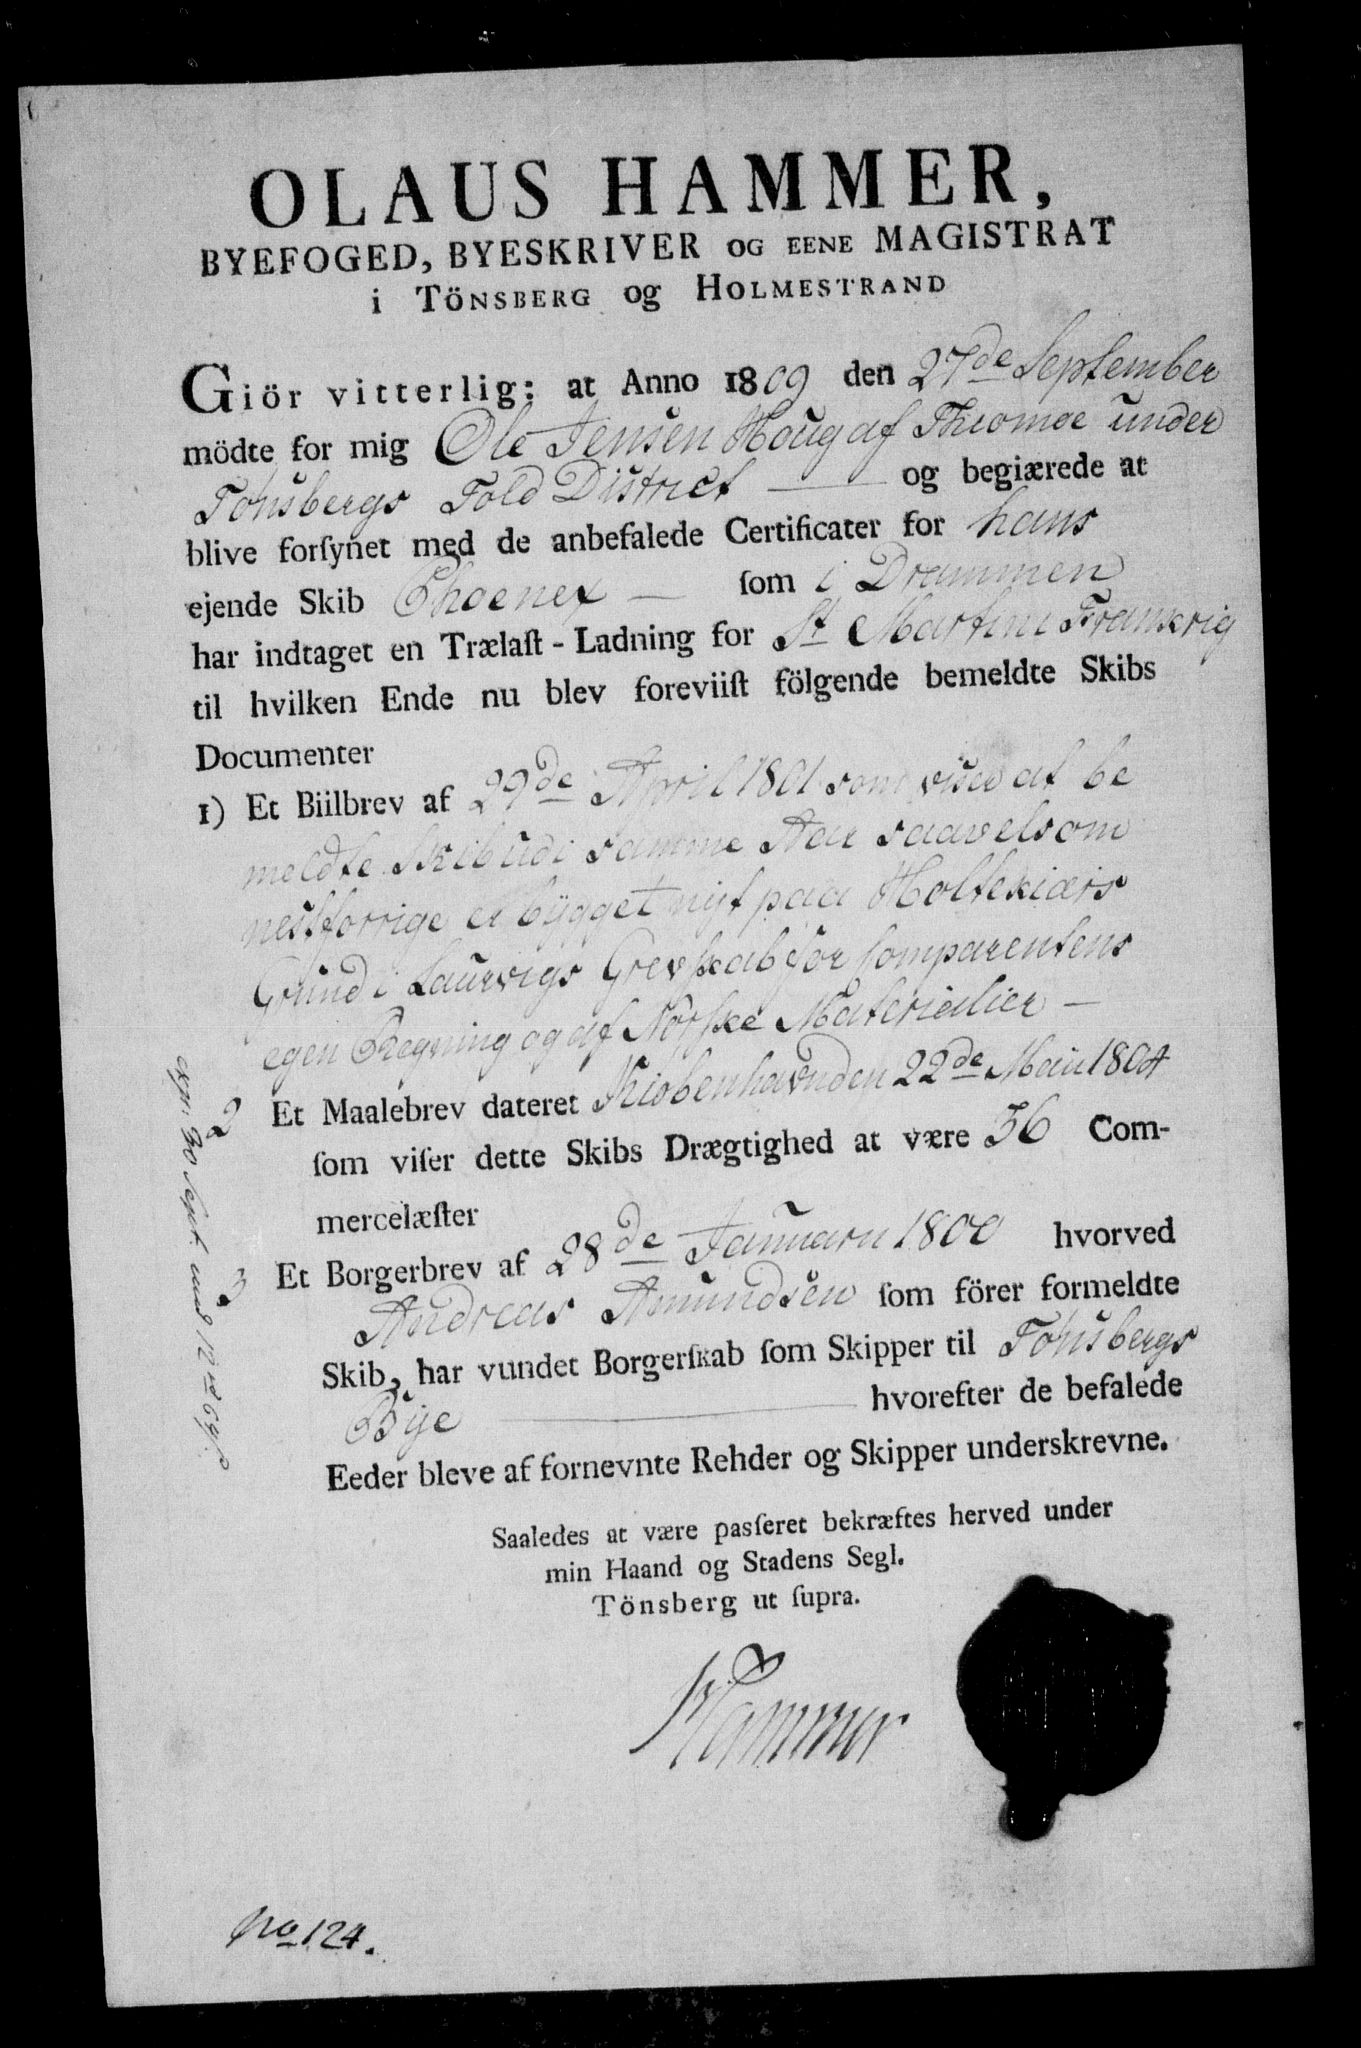 OLAUS HAMMER,
BYEFOGED, BYESKRIVER OG EENE MAGISTRAT
i TÖNSBERG og HOLMESTRAND
Giör vitterlig: at Anno 1809 den 27de September
mödte for mig Ole Jensen Houg af Thiomöe under
Tönsbergs Told District — og begiærede at
blive forſynet med de anbefalede Certificater for hans
ejende Skib Phoenex — ſom i Drammen
har indtaget en Trælaſt-Ladning for St Martin i Frankrig
til hvilken Ende nu blev foreviiſt fölgende bemeldte Skibs
Documenter
1) Et Biilbrev af 29de April 1801 som viser at be
meldte Skib udi samme Aar saavelsom
nestforrige er bygget nyt paa Holtekiærs
Grund i Laurvigs Grevskab for Comparentens
egen Regning og af Norske Materialier —
2 Et Maalebrev dateret Kiöbenhavn den 22de Maii 1804
ſom viſer dette Skibs Drægtighed at være 56 Com-
mercelæſter
3 Et Borgerbrev af 28de Januarii 1800 hvorved
Andreas Amundsen ſom förer formeldte
Skib, har vundet Borgerſkab ſom Skipper til Tönsbergs
Bye — hvorefter de befalede
Eeder bleve af fornevnte Rehder og Skipper underskrevne.
Saaledes at være pasſeret bekræftes herved under
min Haand og Stadens Segl.
Tönsberg ut ſupra.
Hammer
No 124.
30 Sept.